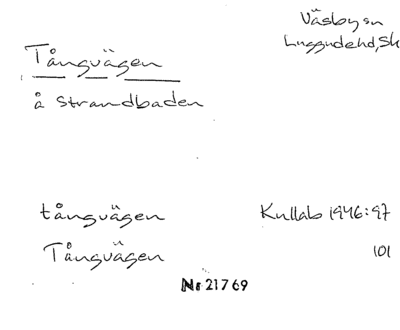 Väsby sn
Luggude hd, Sk
Tångvägen
å Strandbaden
tångvägen Kullab 1946:97
Tångvägen 101
Nr 21769